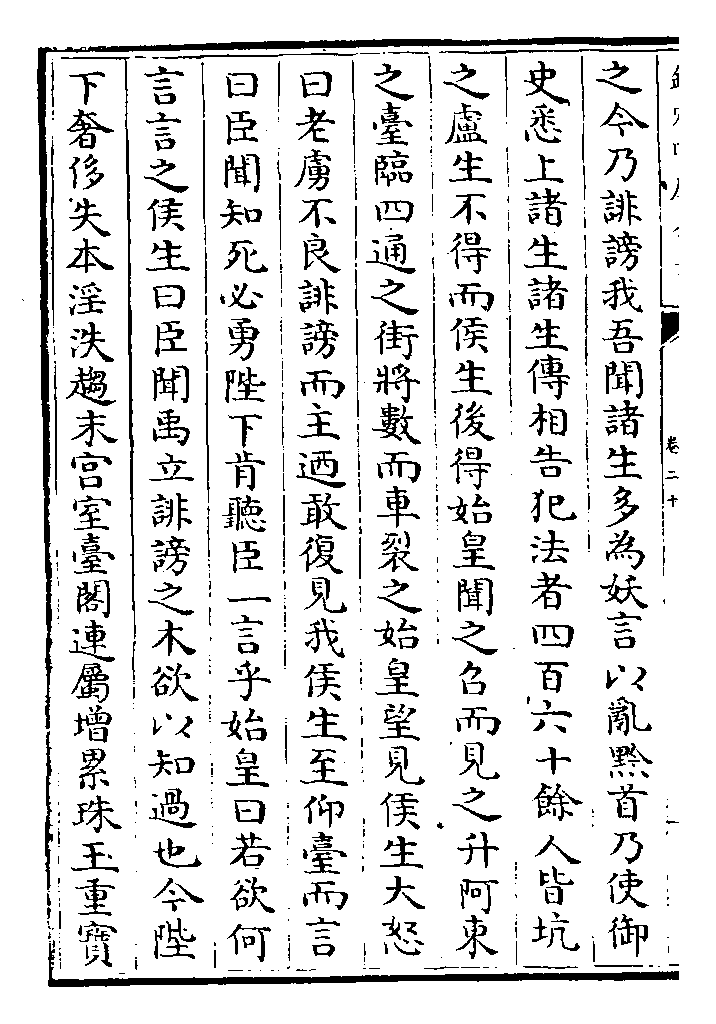 之今乃誹謗我吾聞諸生多為妖言以亂黔首乃使御
史悉上諸生諸生傳相告犯法者四百六十餘人皆坑
之盧生不得而侯生後得始皇聞之召而見之升阿東
之臺臨四通之街將數而車裂之始皇望見侯生大怒
曰老虜不良誹謗而主迺敢復見我侯生至仰臺而言
曰臣聞知死必勇陛下肯聽臣一言乎始皇曰若欲何
言言之侯生曰臣聞禹立誹謗之木欲以知過也今陛
下奢侈失本淫泆趨末宮室臺閣連屬增累珠玉重寶
卷二十